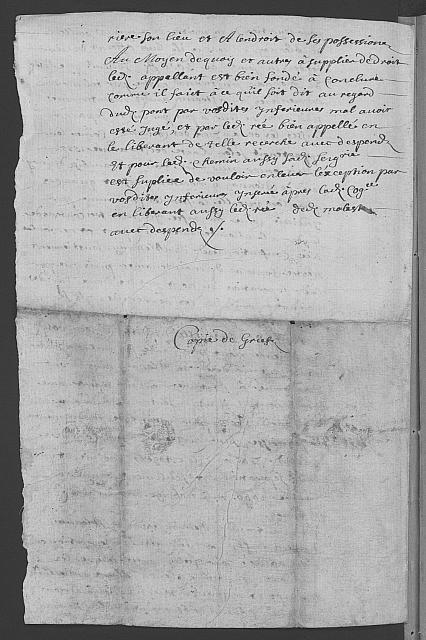 riere son lieu et A lendroit de ses possessions
Au Moyen dequoy et autres à suplier de droit
led. appellant est bien fondé à Conclurre
comme il faict à ce quil soit dit au regard
dud. pont par vosdites inferieures mal avoir
esté Jugé et par led. rée bien appellé en
le liberant de telle recerche avec despends
Et pour led. chemin aussy lad. Seigrie
est supliée de vouloir enlever lexception par
vosdites inferieures inserée apres lad. Cogce
en liberant aussy led. rée ded. moleste
avec despends
Copie de Griefs